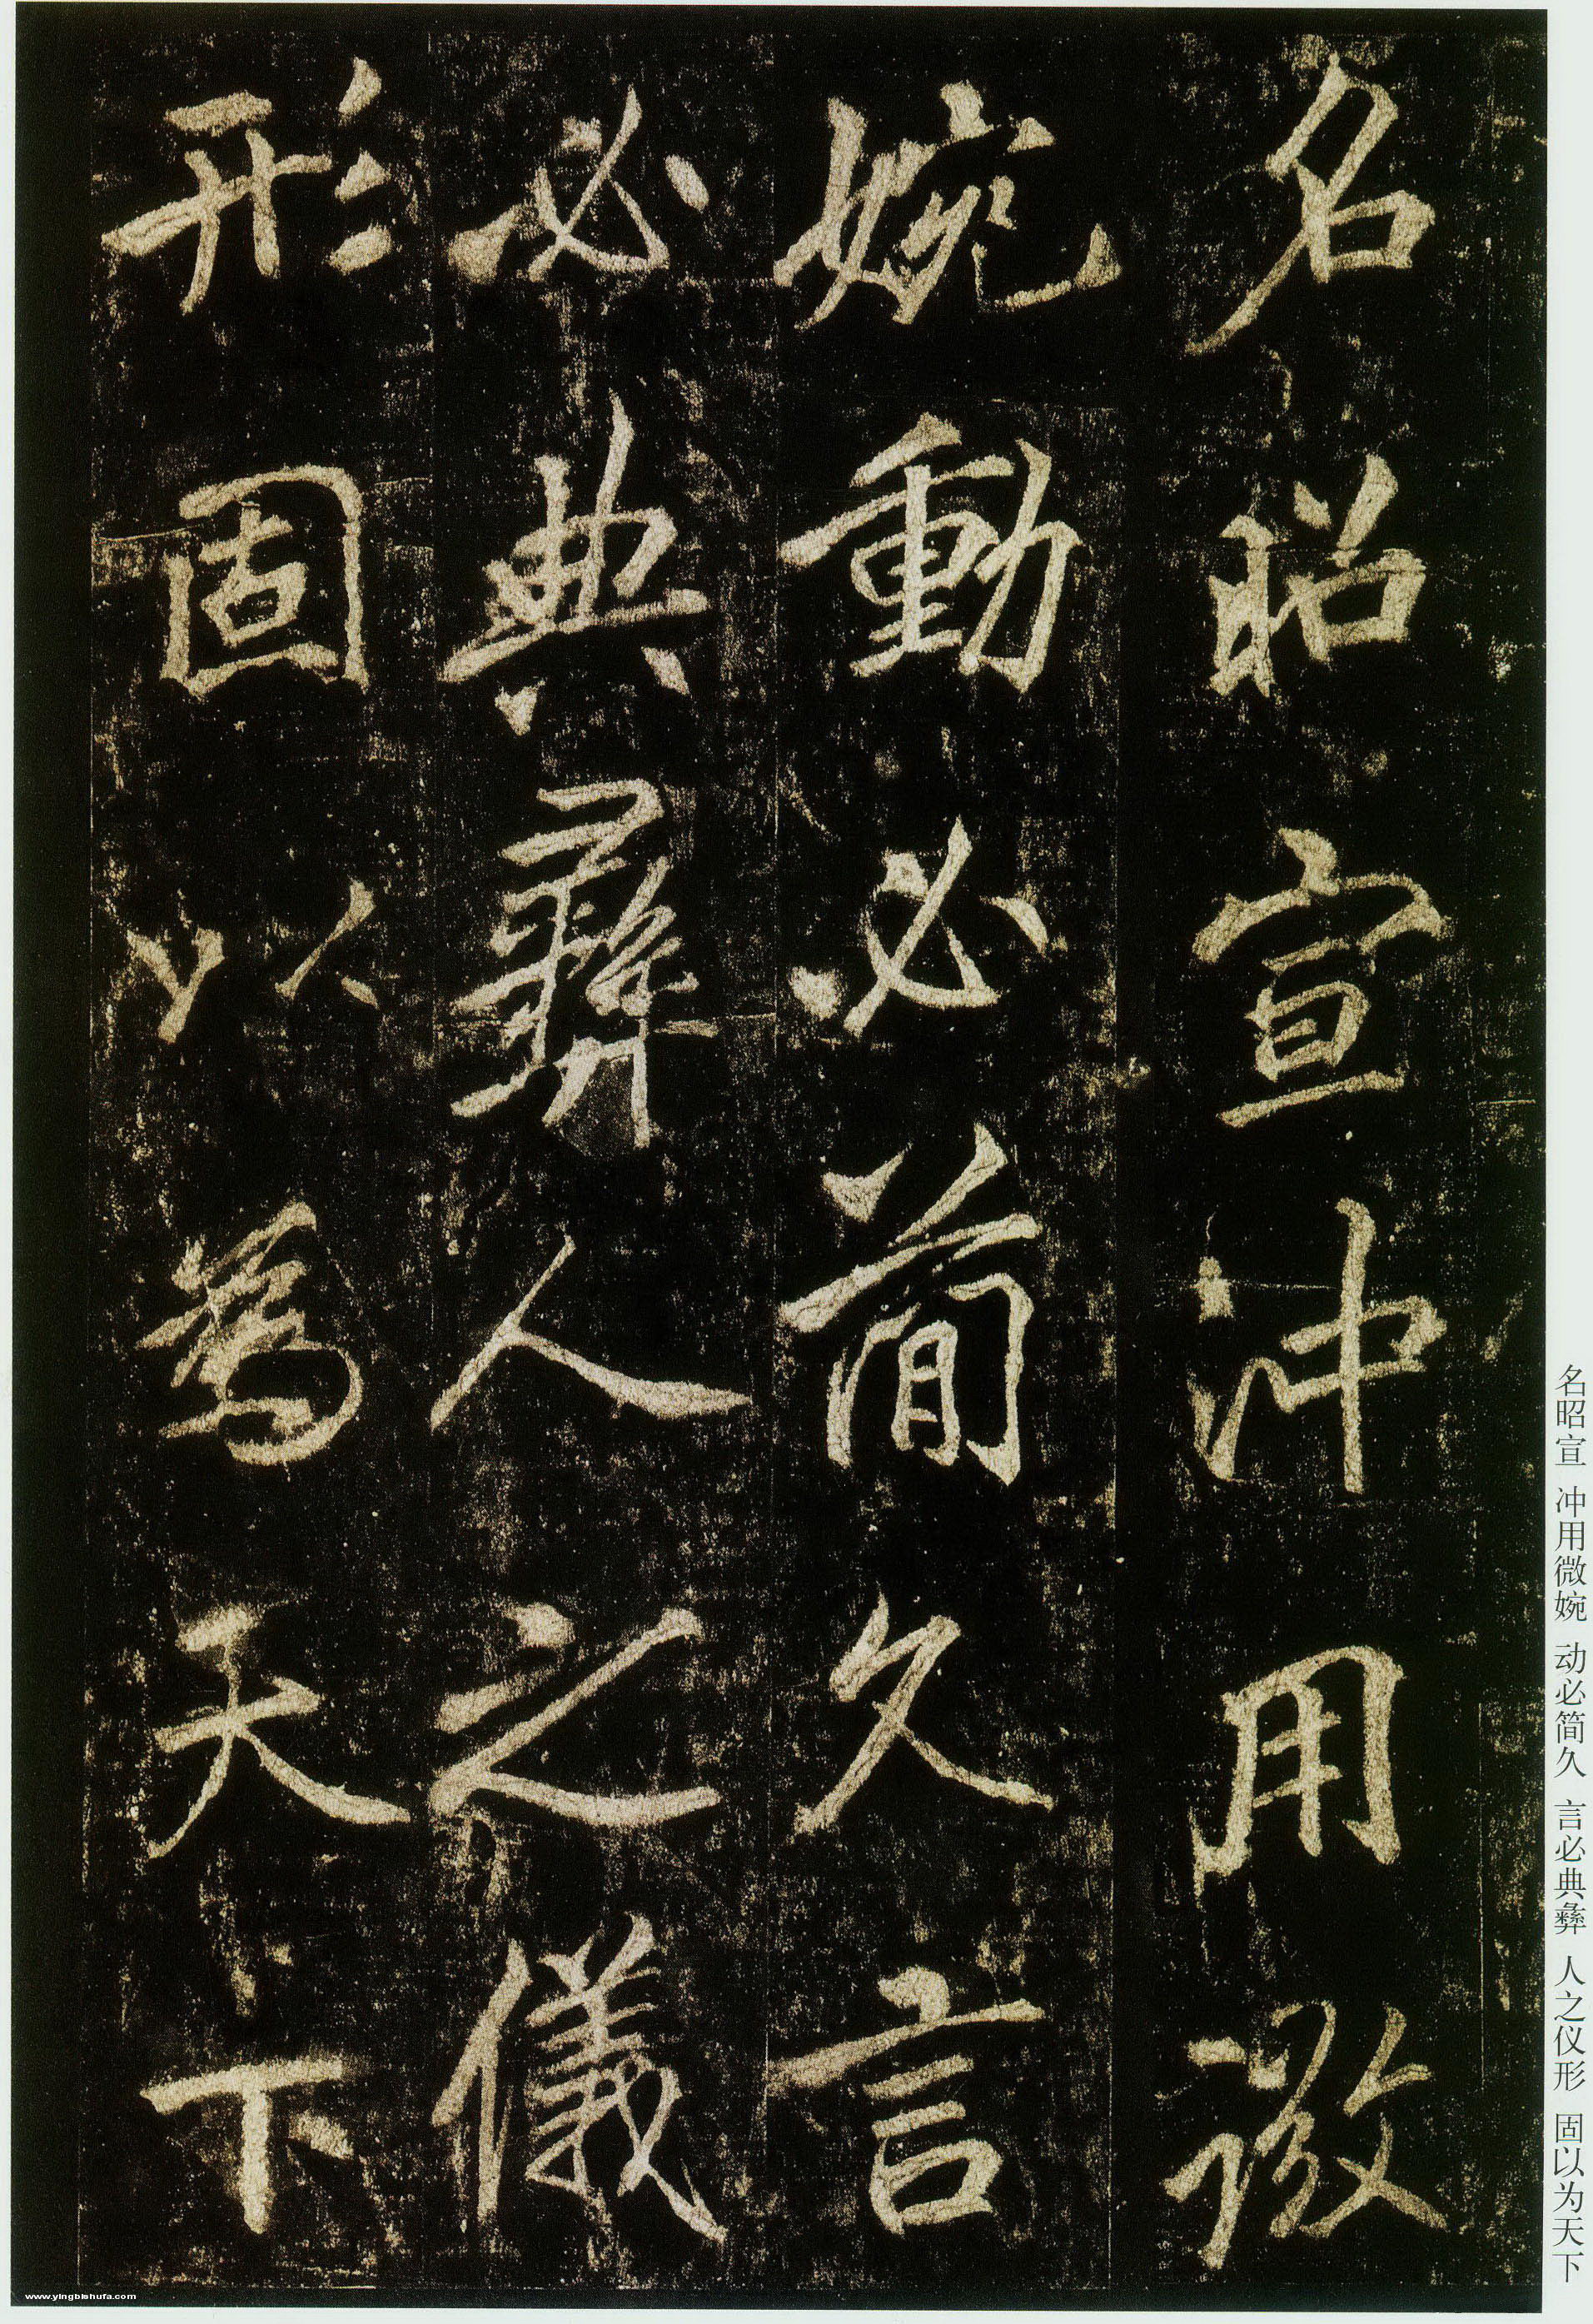 名昭宣冲用微
婉動必簡久言
必典彝人之儀
形固以為天下
名昭宣 冲用微婉 动必简久 言必典彝 人之仪形 固以为天下
www.yingbishufa.com